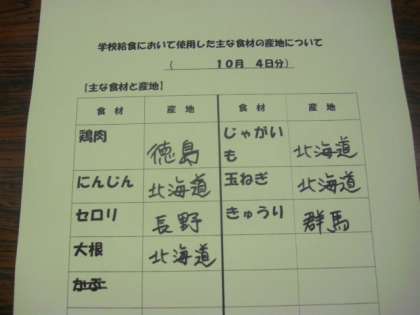 学校給食において使用した主な食材の産地について
(　　　１０月　４日分)
【主な食材と産地】
食　材　産　地　食　材　産　地
鶏肉　徳島　じゃがいも　北海道
にんじん　北海道　玉ねぎ　北海道
セロリ　長野　きゅうり　群馬
大根　北海道
かぶ